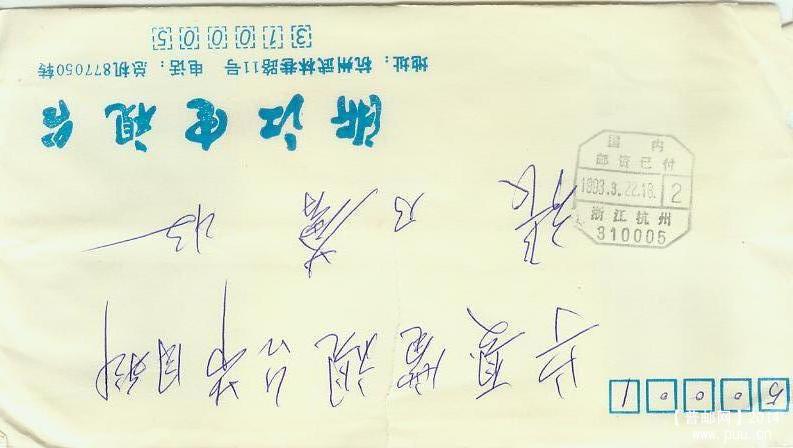 50001
宁夏電視台节目科
张 乃 收
浙江电视台
地址：杭州武林巷路11号 电话：总机877050转
310005
国内
邮资已付
1993.3.22.18. 2
浙江杭州
310005
【普邮网】2014
www.puu.cn